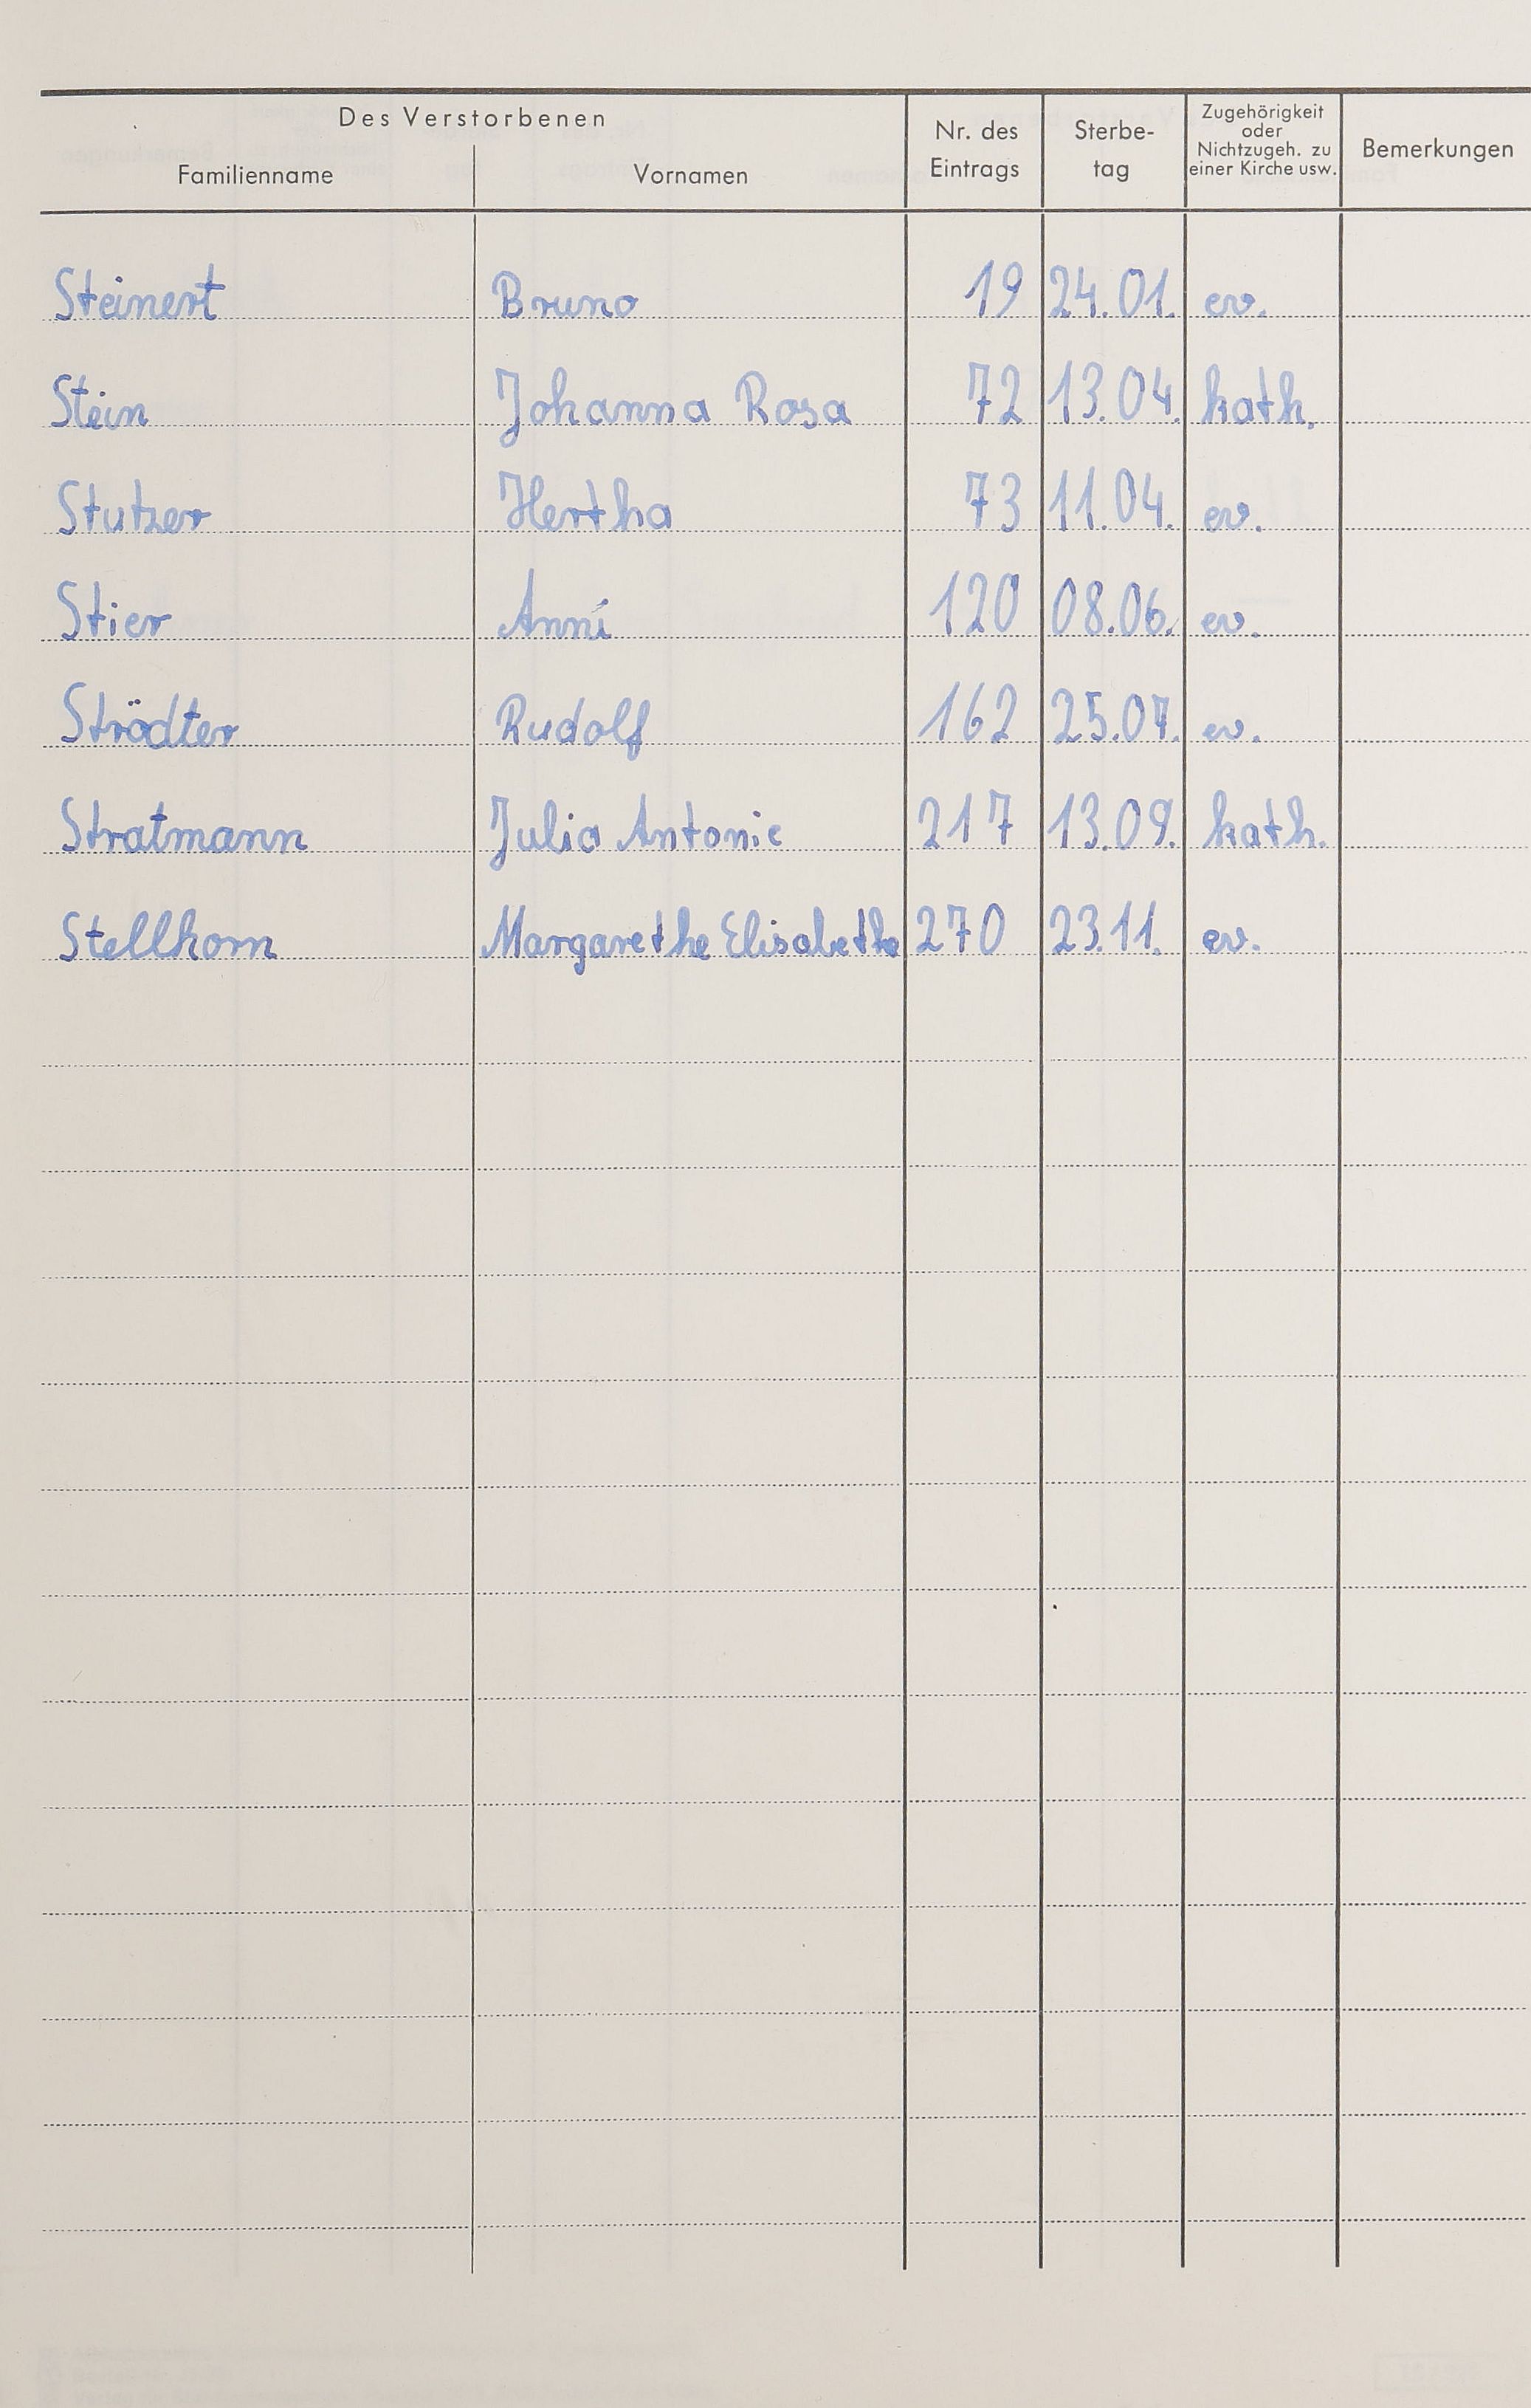 Des Verstorbenen
Familienname Vornamen Nr. des Eintrags Sterbe-tag Zugehörigkeit oder Nichtzugeh. zu einer Kirche usw. Bemerkungen
Steinert Bruno 19 24.01. ev.
Stein Johanna Rosa 72 13.04. kath.
Stutzer Hertha 73 11.04. ev.
Stier Anni 120 08.06. ev.
Strödter Rudolf 162 25.07. ev.
Stratmann Julia Antonie 217 13.09. kath.
Stellhorn Margarethe Elisabetha 270 23.11. ev.